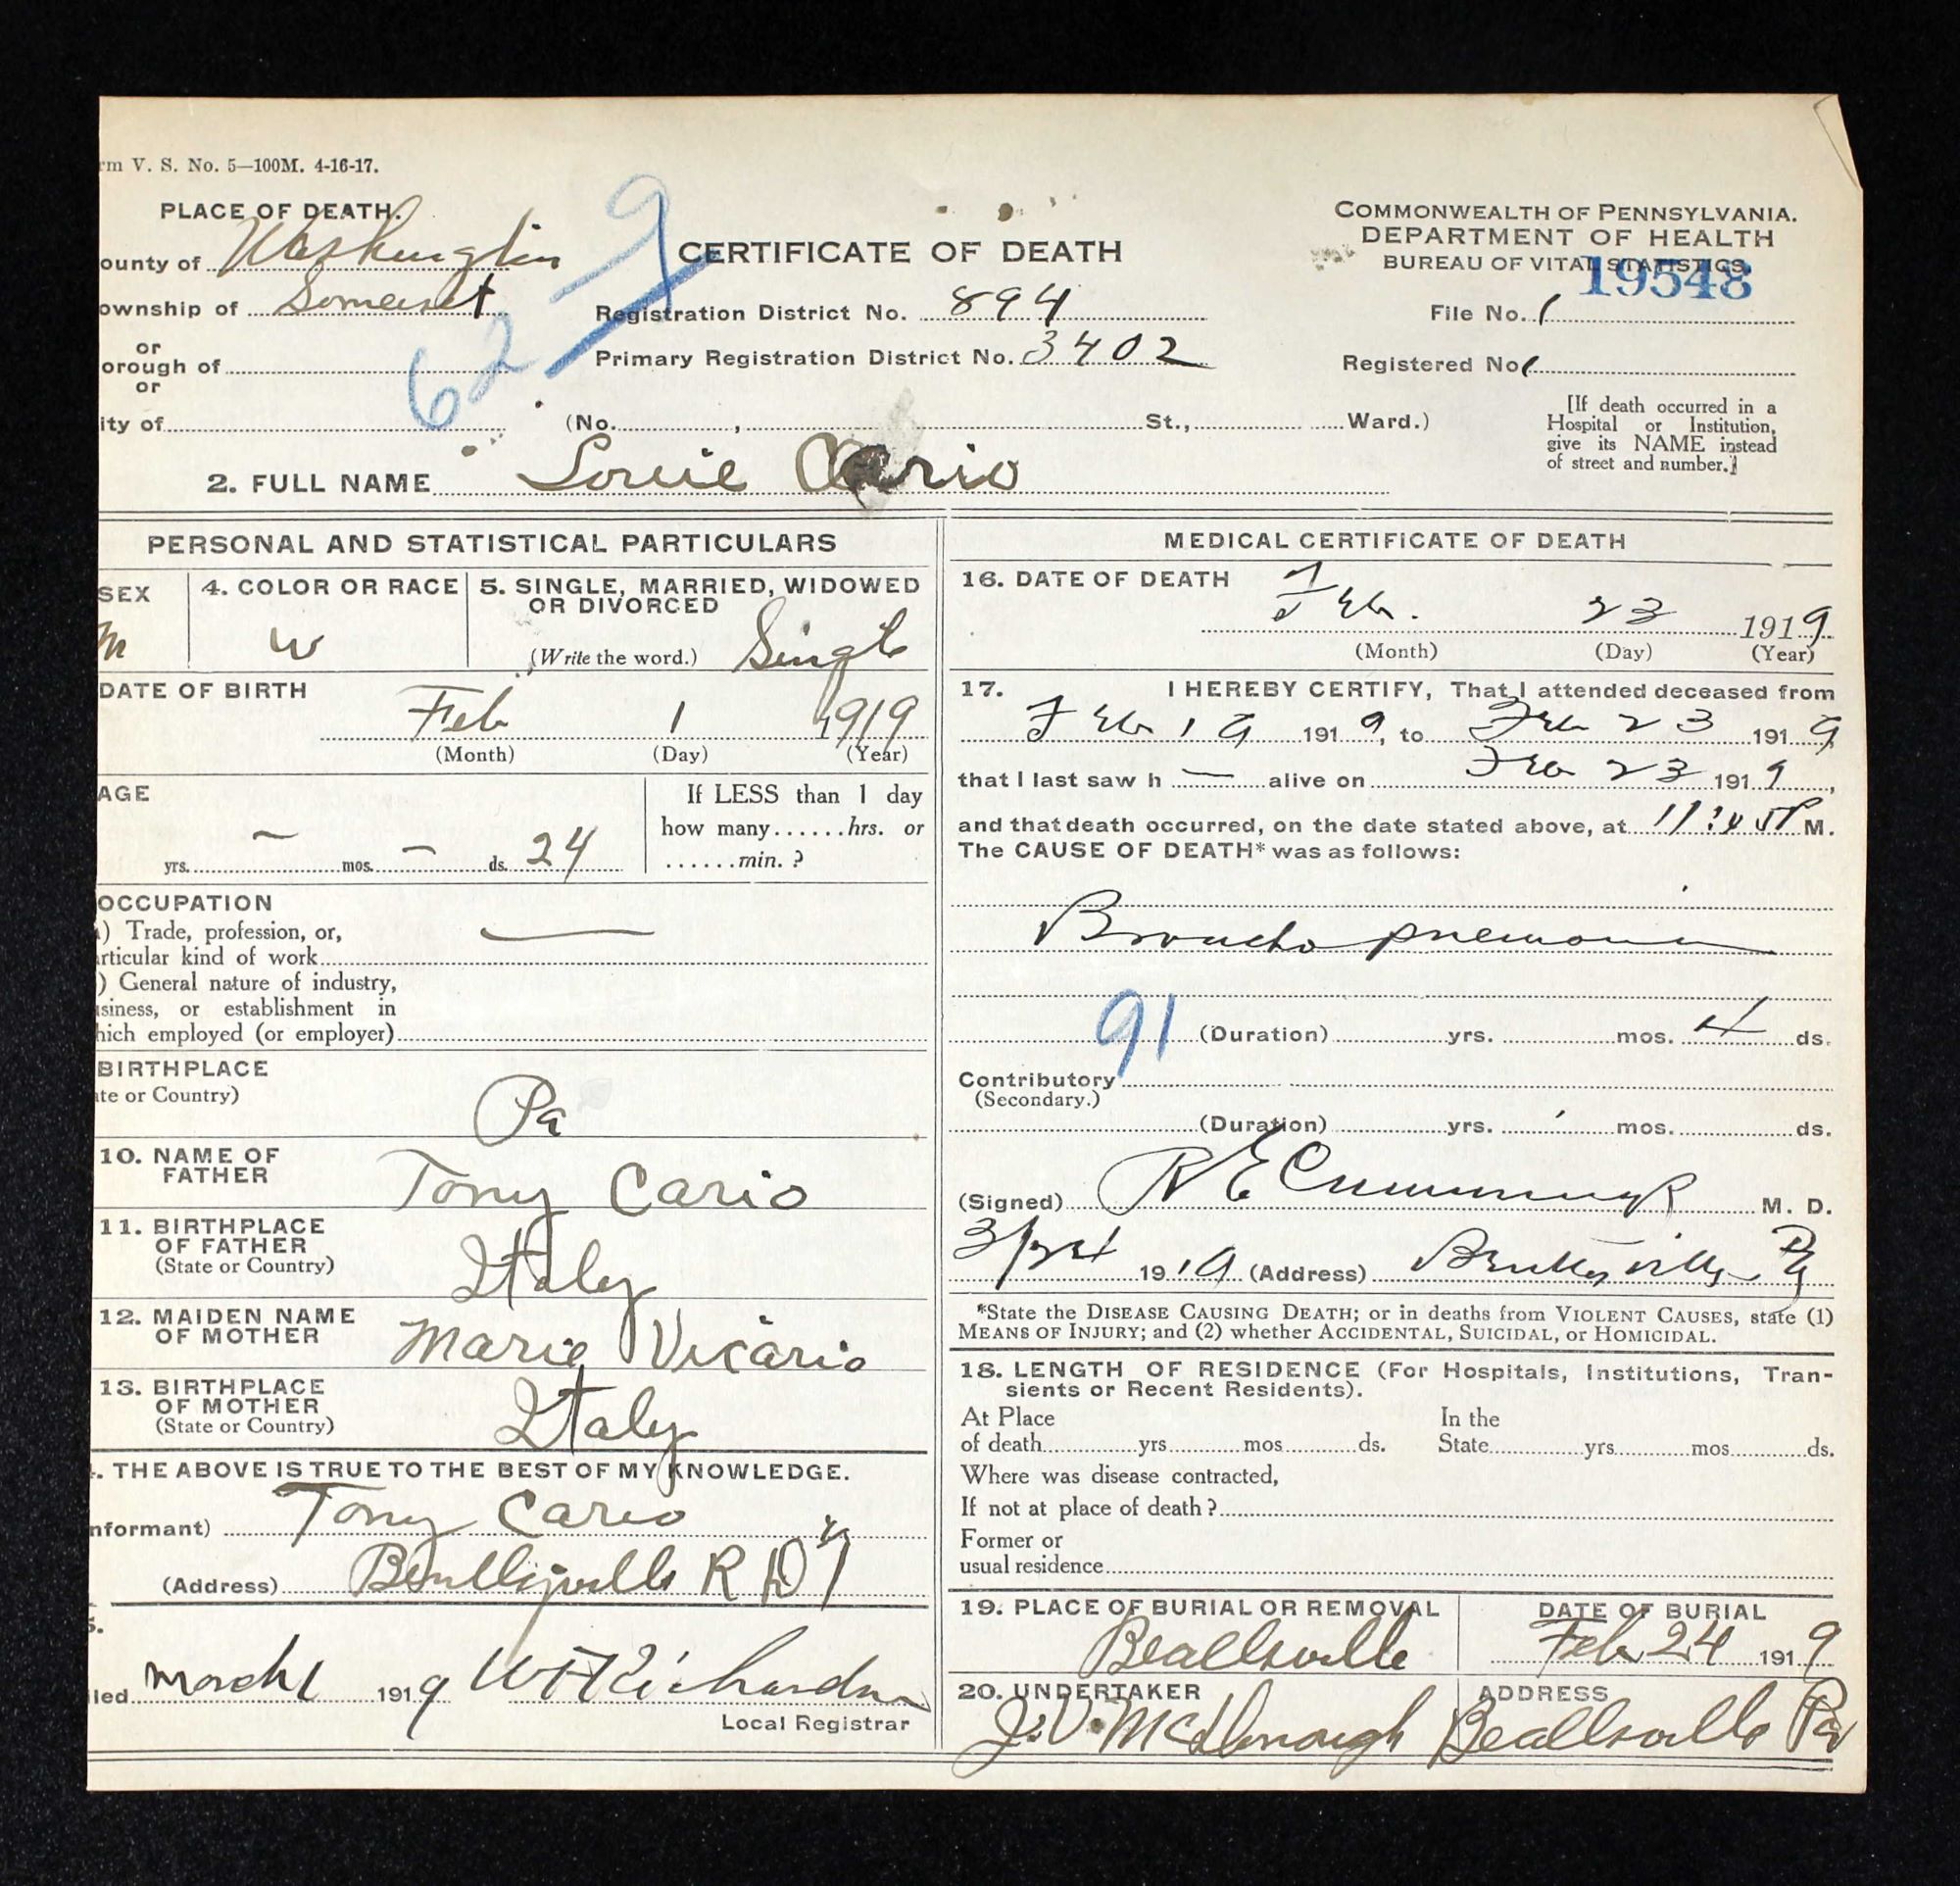 rm V. S. No. 5—100M. 4-16-17.
PLACE OF DEATH.
ounty of Washington
ownship of Somerset
or
orough of
or
ity of
62
9
CERTIFICATE OF DEATH
Registration District No. 894
Primary Registration District No. 3402
(No. , St., Ward.)
COMMONWEALTH OF PENNSYLVANIA.
DEPARTMENT OF HEALTH
BUREAU OF VITAL STATISTICS
19548
File No. 1
Registered No 1
[If death occurred in a
Hospital or Institution,
give its NAME instead
of street and number.]
2. FULL NAME Louie Cario
PERSONAL AND STATISTICAL PARTICULARS
SEX
M
4. COLOR OR RACE
W
5. SINGLE, MARRIED, WIDOWED
OR DIVORCED
(Write the word.) Single
DATE OF BIRTH
Feb 1 1919
(Month) (Day) (Year)
AGE
yrs. – mos. – ds. 24
If LESS than 1 day
how many......hrs. or
......min. ?
OCCUPATION
) Trade, profession, or,
rticular kind of work
) General nature of industry,
usiness, or establishment in
hich employed (or employer)
BIRTHPLACE
te or Country)
Pa
10. NAME OF
FATHER
Tony Cario
11. BIRTHPLACE
OF FATHER
(State or Country)
Italy
12. MAIDEN NAME
OF MOTHER
Marie Vicario
13. BIRTHPLACE
OF MOTHER
(State or Country)
Italy
. THE ABOVE IS TRUE TO THE BEST OF MY KNOWLEDGE.
nformant) Tony Cario
(Address) Beallsville R D
led March 1 1919 W H Richardson
Local Registrar
MEDICAL CERTIFICATE OF DEATH
16. DATE OF DEATH
Feb. 23 1919
(Month) (Day) (Year)
17. I HEREBY CERTIFY, That I attended deceased from
Feb 19 1919, to Feb 23 1919,
that I last saw h — alive on Feb 23 1919,
and that death occurred, on the date stated above, at M.
The CAUSE OF DEATH* was as follows:
Broncho pnemonia
91 (Duration) yrs. mos. 4 ds.
Contributory
(Secondary.)
(Duration) yrs. mos. ds.
(Signed) R E M. D.
1919 (Address) Pa
*State the DISEASE CAUSING DEATH; or in deaths from VIOLENT CAUSES, state (1)
MEANS OF INJURY; and (2) whether ACCIDENTAL, SUICIDAL, or HOMICIDAL.
18. LENGTH OF RESIDENCE (For Hospitals, Institutions, Tran-
sients or Recent Residents).
At Place
of death yrs mos ds.
In the
State yrs mos ds.
Where was disease contracted,
If not at place of death ?
Former or
usual residence
19. PLACE OF BURIAL OR REMOVAL
Beallsville
DATE OF BURIAL
Feb 24 1919
20. UNDERTAKER
J. V. McDonough
ADDRESS
Beallsville Pa